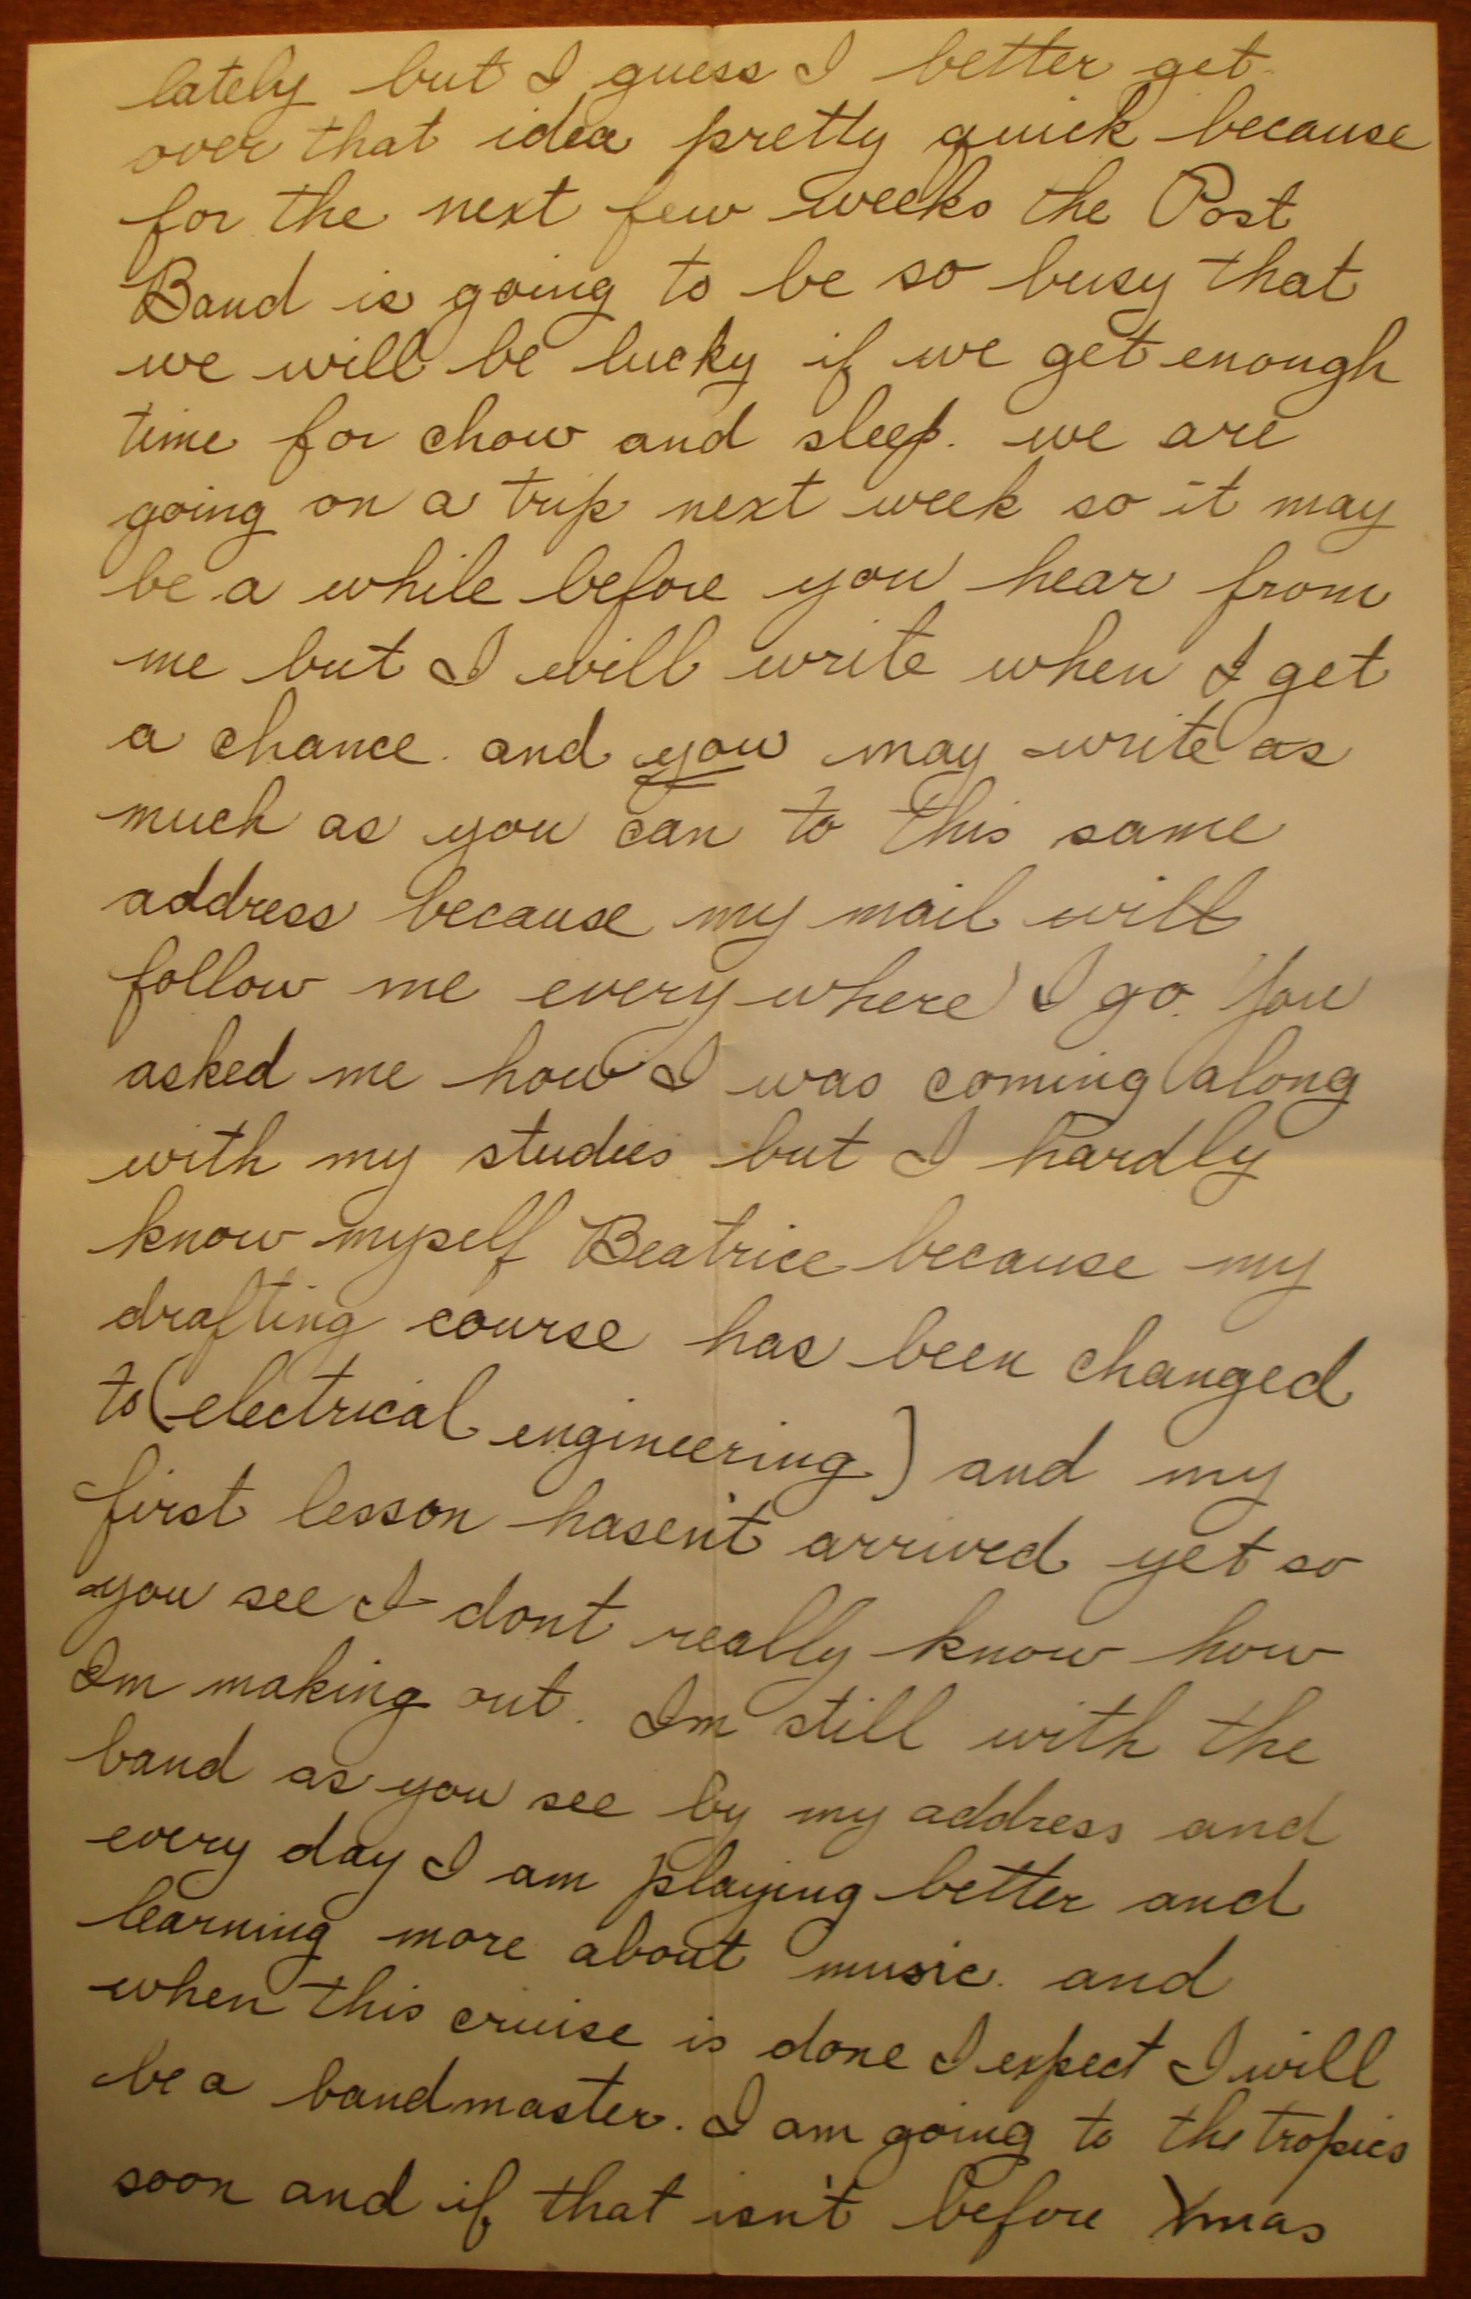 lately but I guess I better get
over that idea pretty quick because
for the next few weeks the Post
Band is going to be so busy that
we will be lucky if we get enough
time for chow and sleep. we are
going on a trip next week so it may
be a while before you hear from
me but I will write when I get
a chance. and you may write as
much as you can to this same
address because my mail will
follow me everywhere I go. You
asked me how I was coming along
with my studies but I hardly
know myself Beatrice because my
drafting course has been changed
to (electrical engineering) and my
first lesson hasen't arrived yet so
you see I dont really know how
Im making out. Im still with the
band as you see by my address and
every day I am playing better and
learning more about music. and
when this cruise is done I expect I will
be a bandmaster. I am going to the tropics
soon and if that isn't before Xmas